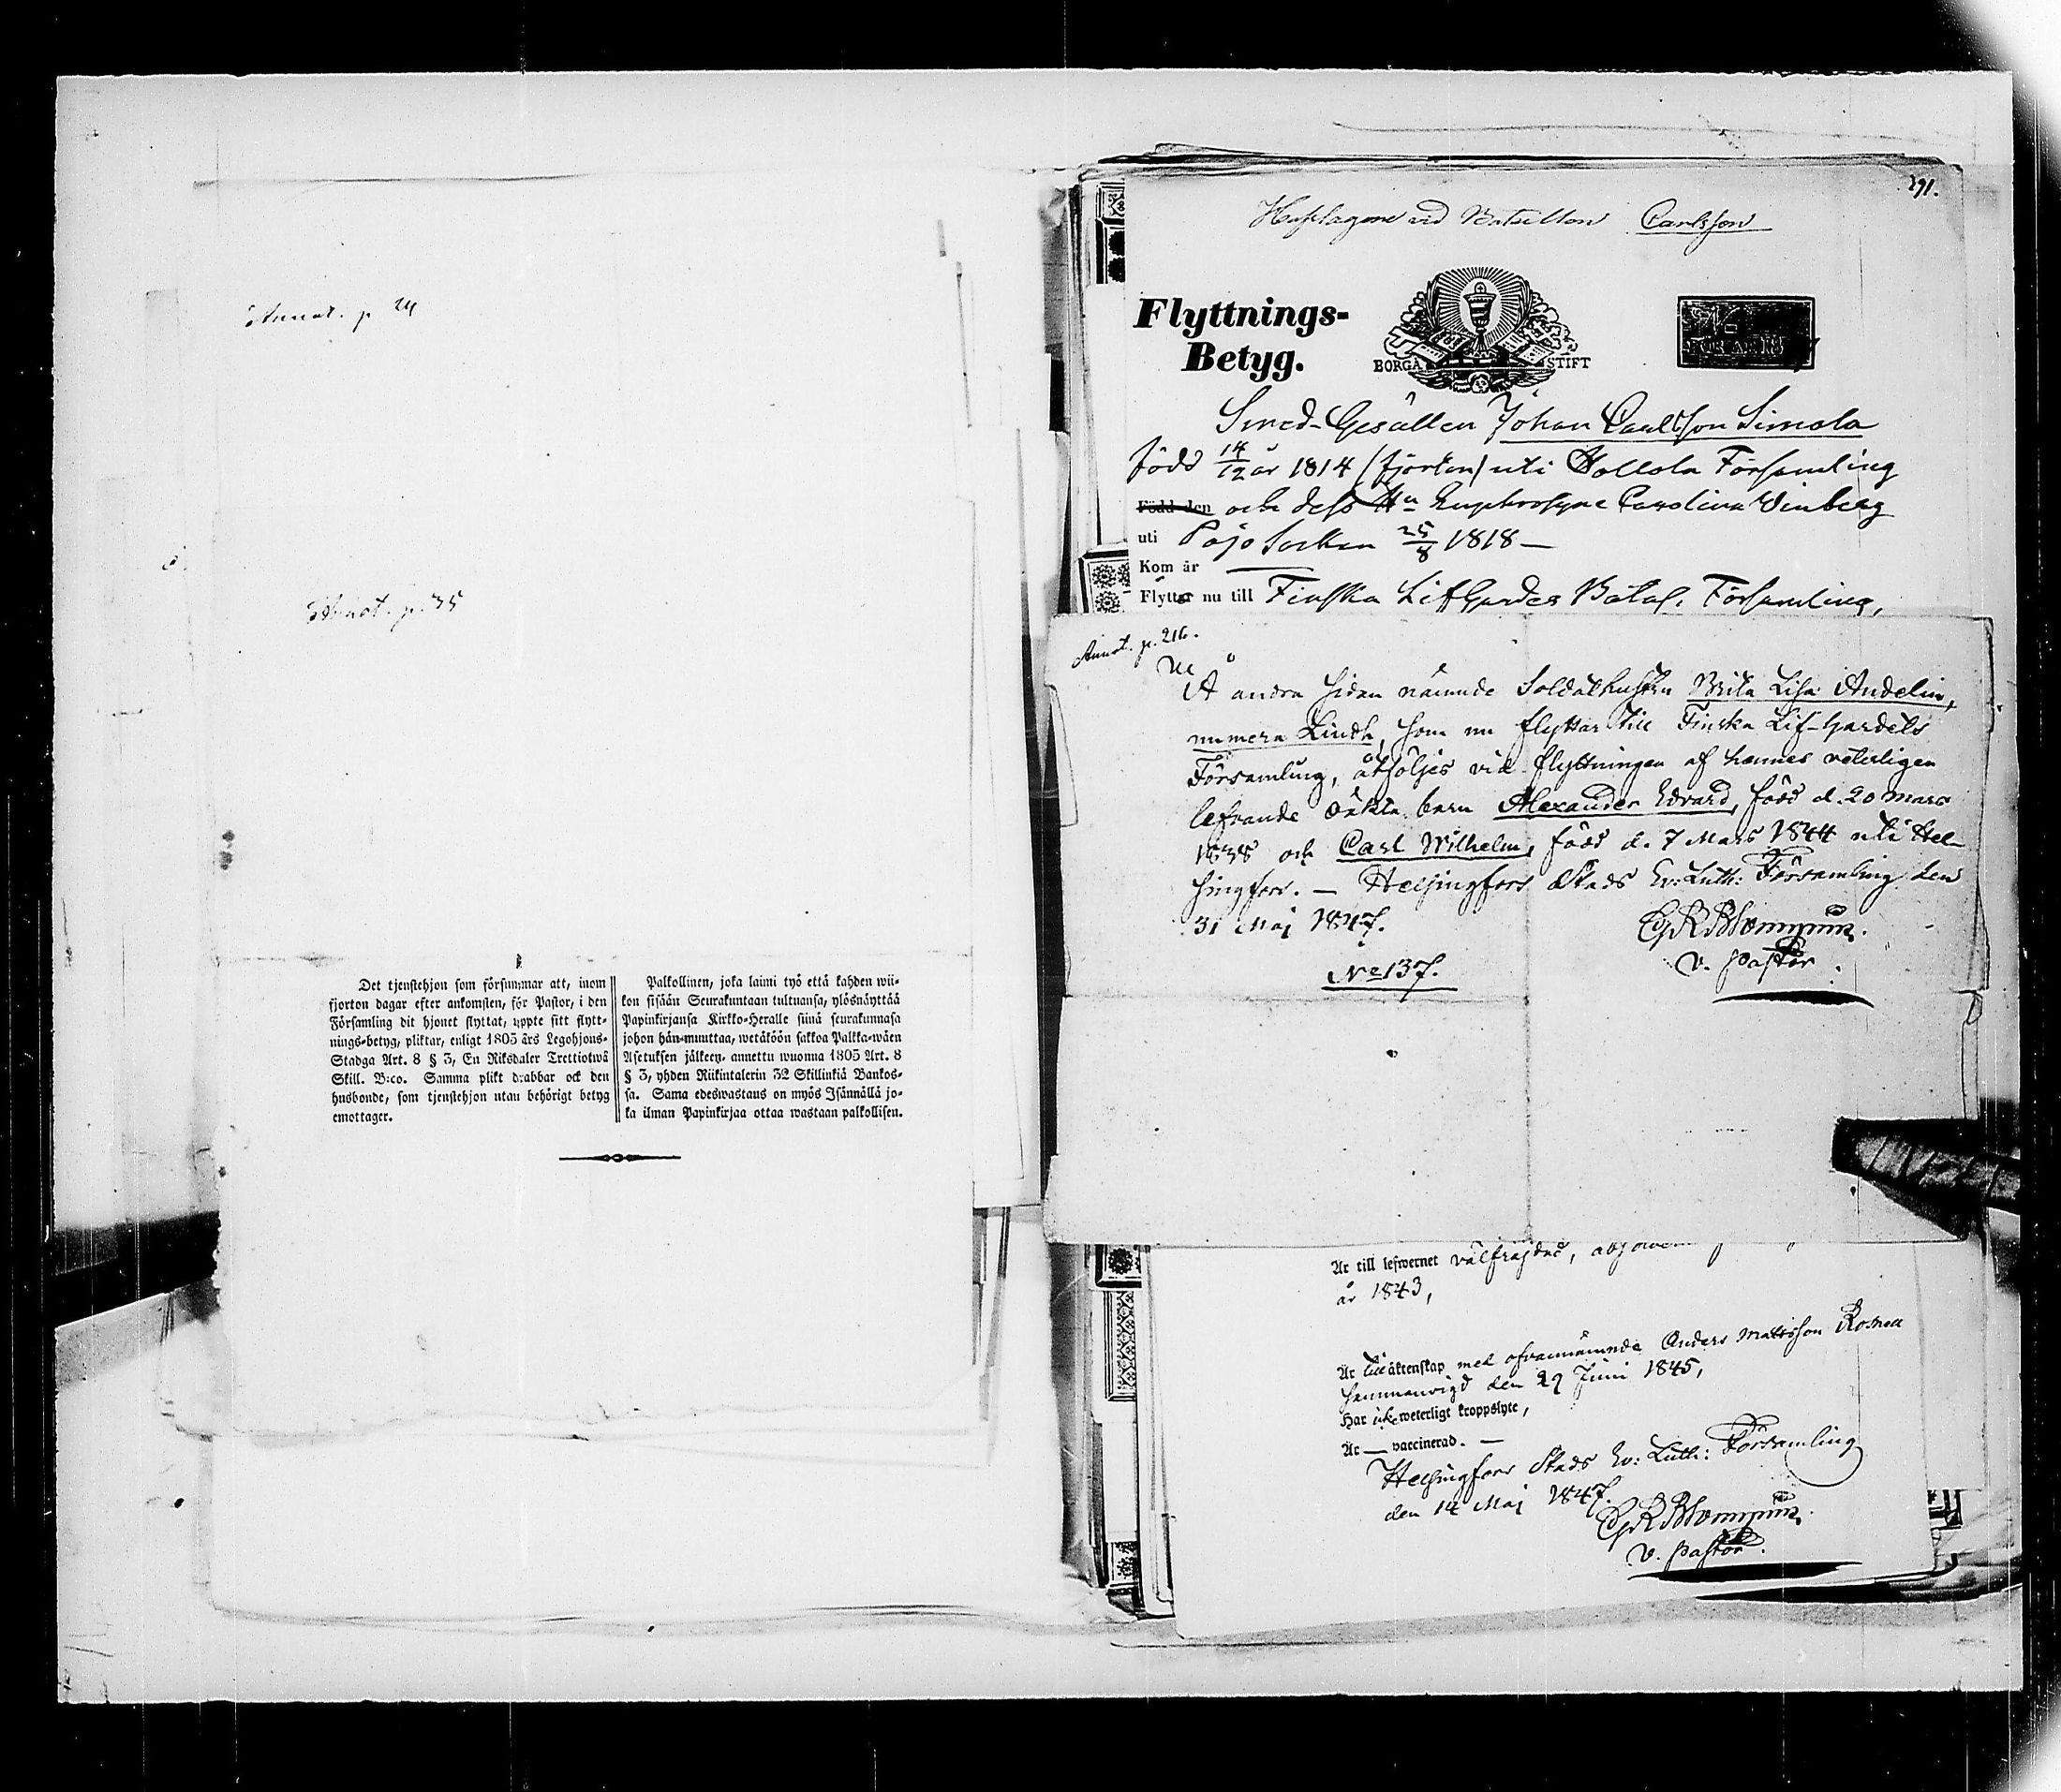 Annot. p. 24
Annot. p. 35
Det tjenstehjon som försummar att, inom
fjorton dagar efter ankomsten, för Pastor, i den
Församling dit hjonet flyttat, uppte sitt flytt-
nings-betyg, pliktar, enligt 1805 års Legohjons-
Stadga Art. 8 § 3, En Riksdaler Trettiotwå
Skill. B:co. Samma plikt drabbar ock den
husbonde, som tjenstehjon utan behörigt betyg
emottager.
Palkollinen, joka laimi työ että kahden wii-
kon sisään Seurakuntaan tultuansa, ylösnäyttää
Papinkirjansa Kirkko-Heralle siinä seurakunnasa
johon hän muuttaa, wetäköön sakkoa Palkka-wäen
Asetuksen jälkeen, annettu wuonna 1805 Art. 8
§ 3, yhden Riikintalerin 32 Skillinkiä Bankos-
sa. Sama edeswastaus on myös Isännällä jo-
ka ilman Papinkirjaa ottaa wastaan palkollisen.
291.
Hofslagare vid Bataillon Carlsson
Flyttnings-
Betyg.
BORGÅ STIFT
No
FÖR ÅR 18
Smed-Gesällen Johan Carlsson Simola
född 14/12 år 1814 (fjorton) uti Hollola Församling
Född den och dess Hu Euphrosyne Carolina Vinberg
uti Pojo Socken 25/8 1818 —
Kom år
Flyttar nu till Finska Lif Gardes Batal. Församling,
Annot. p. 216.
Å andra sidan nämnde Soldathustru Brita Lisa Andelin,
numera Lindh, som nu flyttar till Finska Lif-Gardets
Församling, åtföljes vid flyttningen af hennes veterligen
lefvande oäkta barn Alexander Edvard, född d. 20 Mars
1838 och Carl Wilhelm, född d. 7 Mars 1844 uti Hel-
singfors. — Helsingfors Stads Ev: Luth: Församling den
31 Maj 1847.
v. Pastor.
No 137.
Är till lefwernet välfräjdad,
år 1843,
Är till äktenskap med ofvannämnde Anders Mattsson
sammanvigd den 29 Juni 1845,
Har icke weterligt kroppslyte,
Är — vaccinerad. —
Helsingfors Stads Ev: Luth: Församling
den 14 Maj 1847.
v. Pastor.